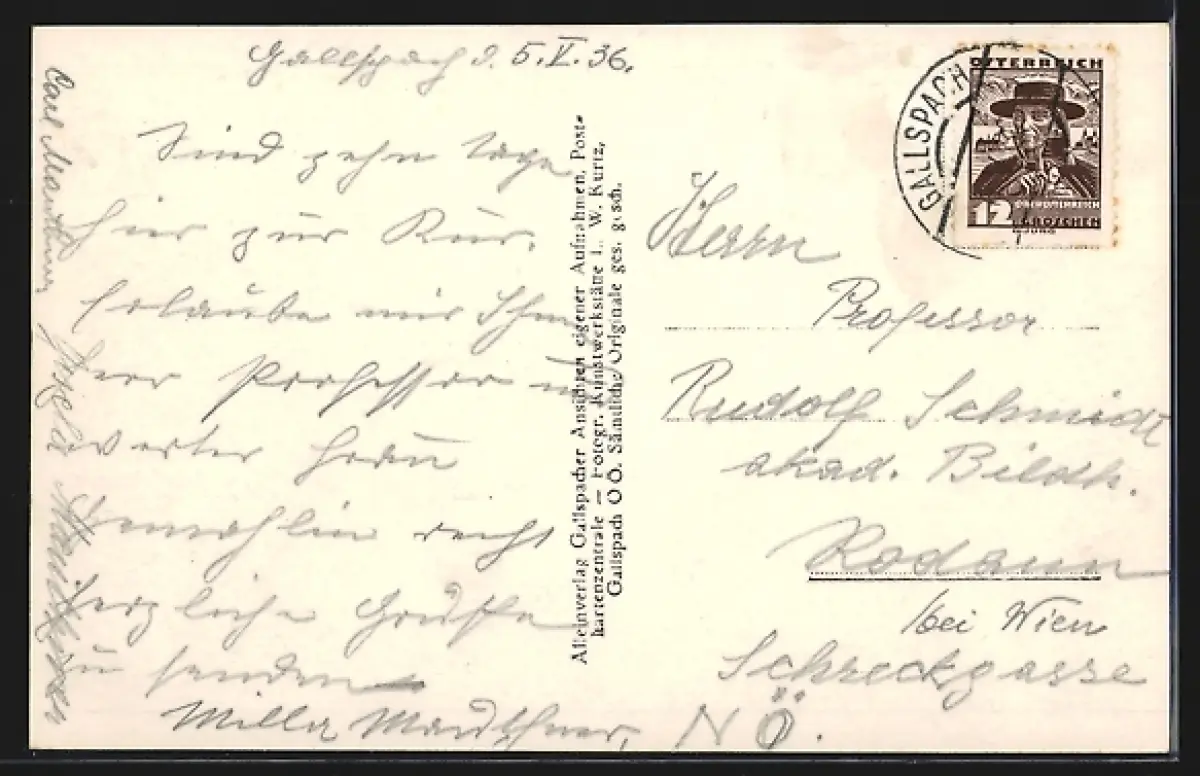 Gallspach d. 5.V.36.
Sind zehn Tage
hier zur Kur.
Erlaube mir Ihnen
Herr Professor und
werter Frau
Gemahlin recht
herzliche Grüße
zu senden
Milla Mauthner,
Carl Mauthner
Alleinverlag Gallspacher Ansichten eigener Aufnahmen, Post-
kartenzentrale — Fotogr. Kunstwerkstätte L. W. Kurtz,
Gallspach O.Ö. Sämtliche Originale ges. gesch.
GALLSPACH
ÖSTERREICH
12
OBERÖSTERREICH
GROSCHEN
Herrn
Professor
Rudolf Schmidt
akad. Bildh.
Rodaun
bei Wien
Schreckgasse
N Ö.